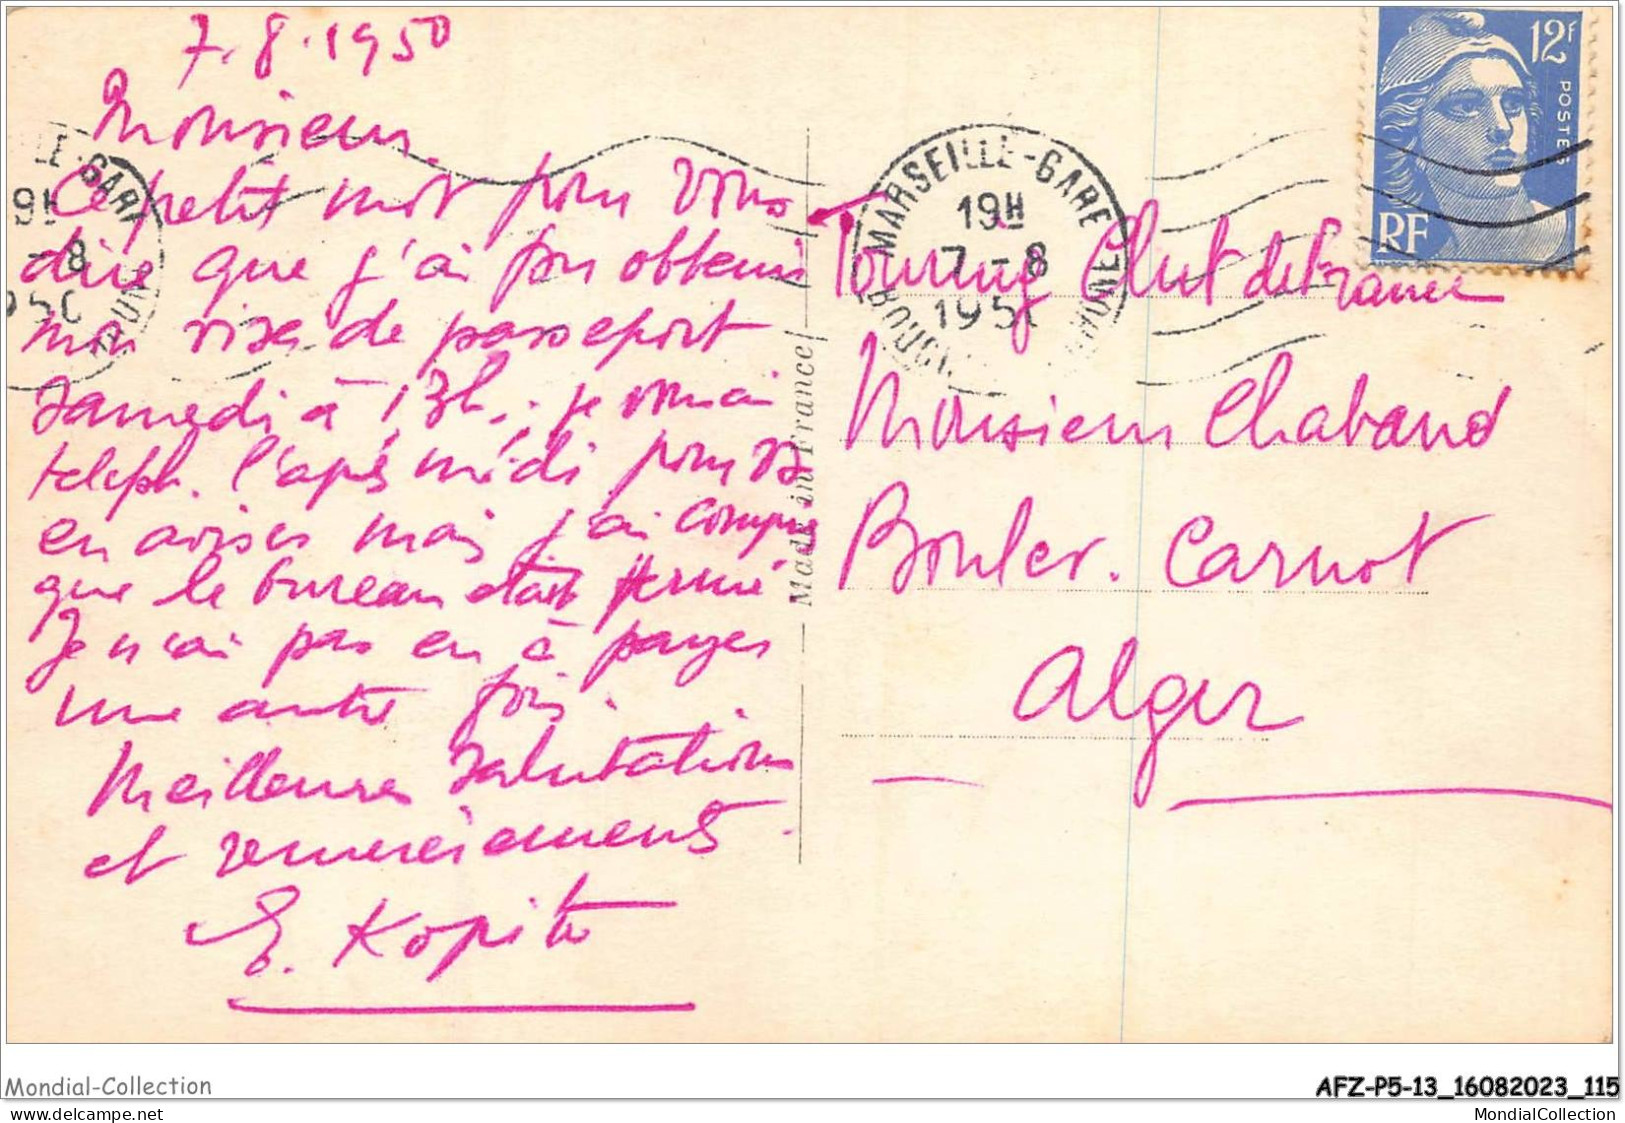 7.8.1950
Monsieur.
Ce petit mot pour vous
dire que j'ai pu obtenir
mon visa de passeport
samedi à 13h, je
teleph. l'après midi pour vs
en aviser mais j'ai compris
que le bureau était fermé
Je n'ai pas eu à payer
une autre fois.
Meilleures salutations
et remerciements.
E. Kopito
Made in France
Touring Club de France
Monsieur Chabaud
Boulev. Carnot
Alger
MARSEILLE-GARE
19H
7-8
195
12F
POSTES
RF
LE-GARE
9H
-8
950
Mondial-Collection
delcampe.net
AFZ-P5-13_16082023_115
MondialCollection